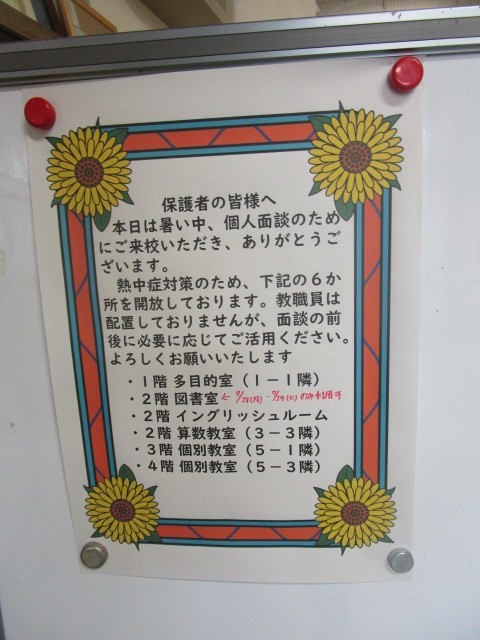 保護者の皆様へ
本日は暑い中、個人面談のため
にご来校いただき、ありがとうご
ざいます。
熱中症対策のため、下記の６か
所を開放しております。教職員は
配置しておりませんが、面談の前
後に必要に応じてご活用ください。
よろしくお願いいたします
・１階 多目的室（１－１隣）
・２階 図書室 ←
・２階 イングリッシュルーム
・２階 算数教室（３－３隣）
・３階 個別教室（５－１隣）
・４階 個別教室（５－３隣）